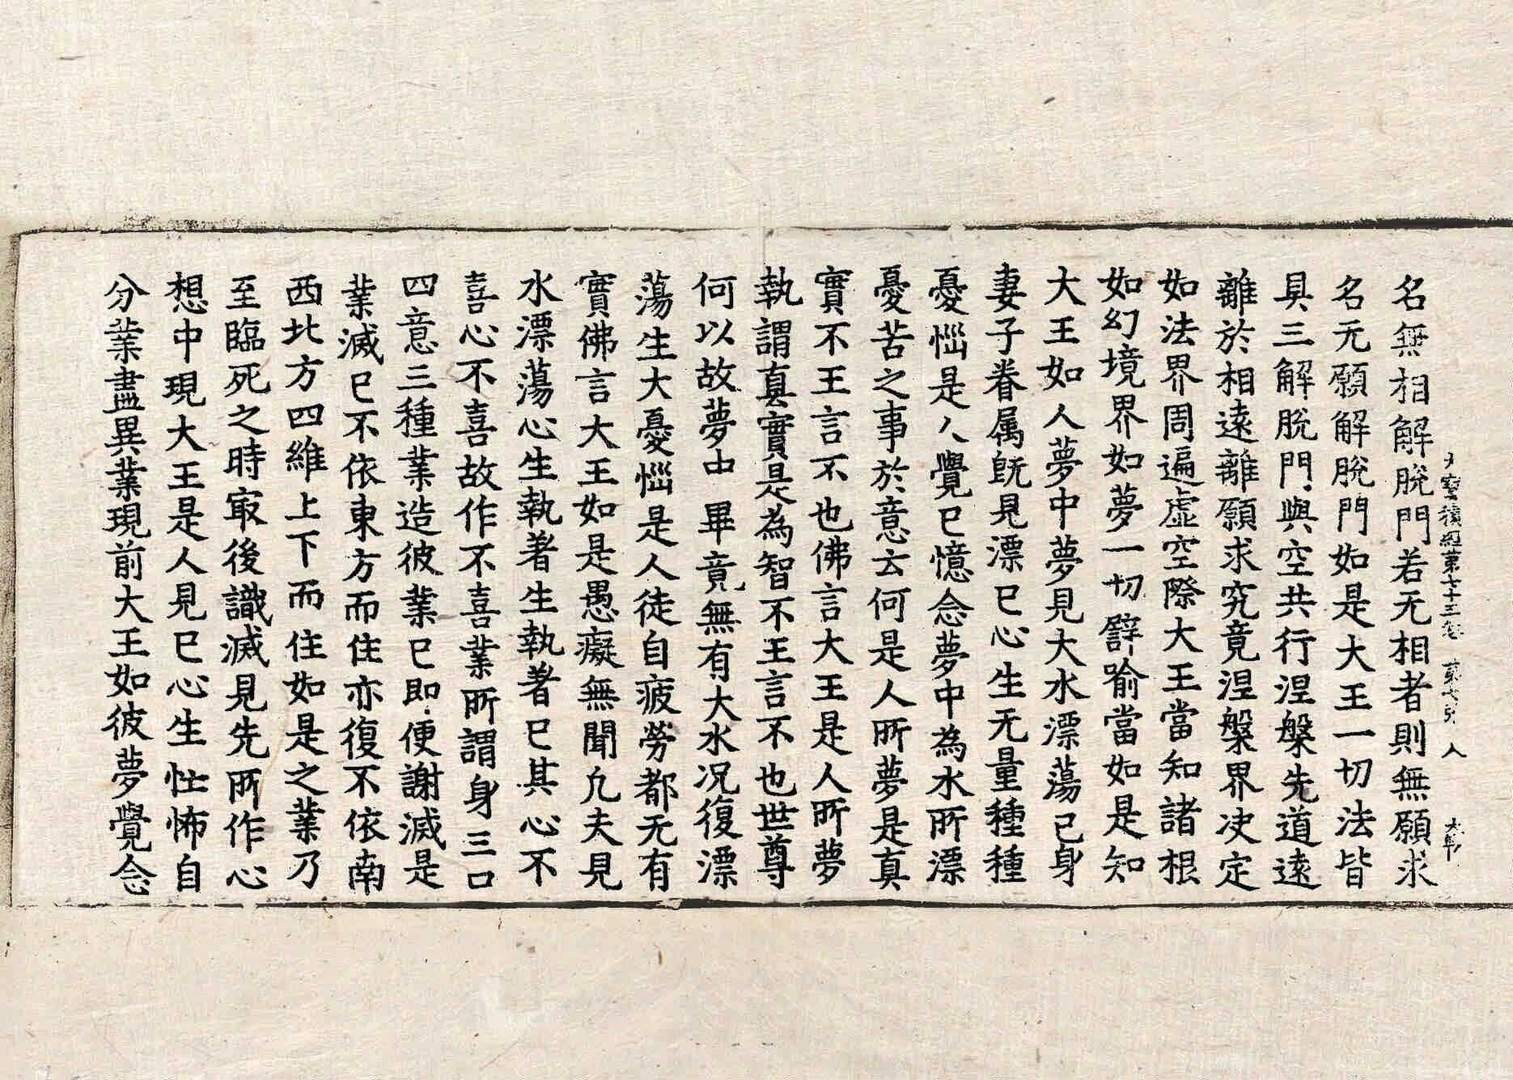 大寶積經第七十三卷 第七張 人
名無相解脫門若无相者則無願求
名无願解脫門如是大王一切法皆
具三解脫門與空共行涅槃先道遠
離於相遠離願求究竟涅槃界决定
如法界周遍虛空際大王當知諸根
如幻境界如夢一切譬喻當如是知
大王如人夢中夢見大水漂蕩已身
妻子眷属旣見漂已心生无量種種
憂惱是人覺已憶念夢中為水所漂
憂苦之事於意云何是人所夢是真
實不王言不也佛言大王是人所夢
執謂真實是為智不王言不也世尊
何以故夢中畢竟無有大水况復漂
蕩生大憂惱是人徒自疲勞都无有
實佛言大王如是愚癡無聞凡夫見
水漂蕩心生執著生執著已其心不
喜心不喜故作不喜業所謂身三口
四意三種業造彼業已即便謝滅是
業滅已不依東方而住亦復不依南
西北方四維上下而住如是之業乃
至臨死之時㝡後識滅見先所作心
想中現大王是人見已心生恠怖自
分業盡異業現前大王如彼夢覺念